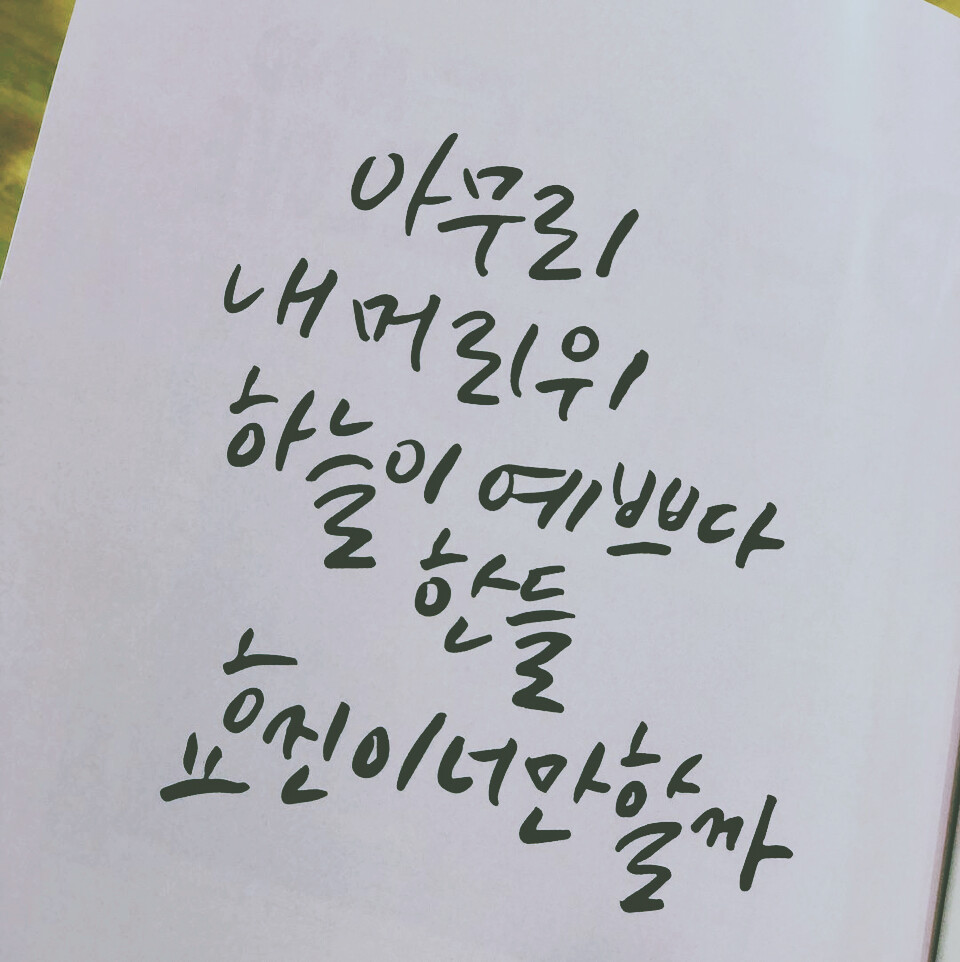 아무리
내 머리 위
하늘이 예쁘다
한들
효진이 너만 할까